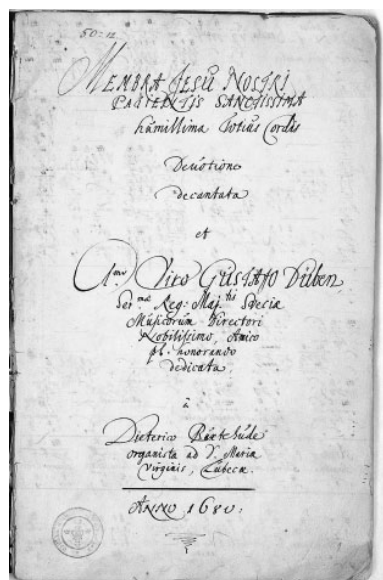 50:12
MEMBRA JESU NOSTRI
PATIENTIS SANCTISSIMA
humillima Totius Cordis
Devotione
decantata
et
Viro GUSTAVO Düben
Ser.mæ Reg: Maj.tis Sveciæ
Musicorum Directori
Nobilissimo, Amico
pl. honorando
dedicata
à
Dieterico Buxtehude
organista ad S. Mariæ
Virginis, Lubecæ.
ANNO 1680.